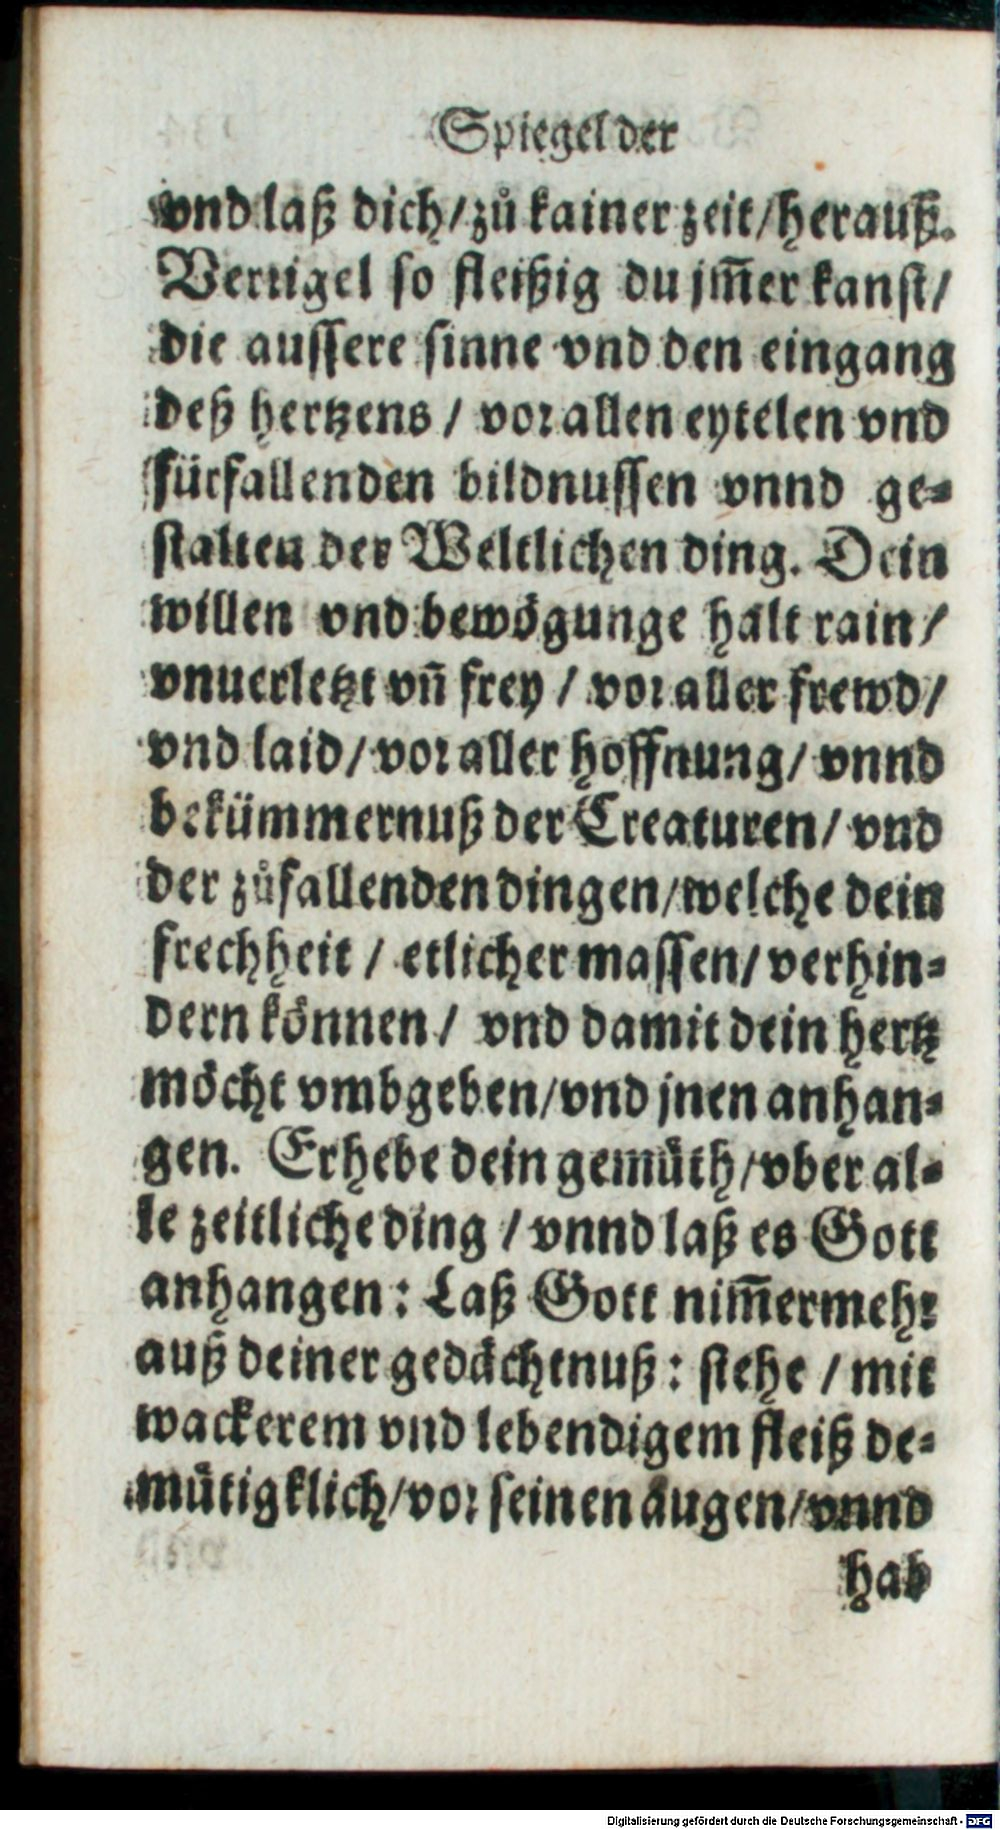 Spiegel der
vnd laß dich / zů kainer zeit / herauß.
Verrigel so fleißig du jm̃er kanst /
die aussere sinne vnd den eingang
deß hertzens / vor allen eytelen vnd
fürfallenden bildnussen vnnd ge-
stalten der Weltlichen ding. Dein
willen vnd bewögunge halt rain /
vnuerletzt vñ frey / vor aller frewd /
vnd laid / vor aller hoffnung / vnnd
bekümmernuß der Creaturen / vnd
der zůfallenden dingen / welche dein
frechheit / etlicher massen / verhin-
dern können / vnd damit dein hertz
möcht vmbgeben / vnd jnen anhan-
gen. Erhebe dein gemüth / vber al-
le zeitliche ding / vnnd laß es Gott
anhangen: Laß Gott nim̃ermehr
auß deiner gedächtnuß: stehe / mit
wackerem vnd lebendigem fleiß de-
mütigklich / vor seinen augen / vnnd
hab
Digitalisierung gefördert durch die Deutsche Forschungsgemeinschaft - DFG